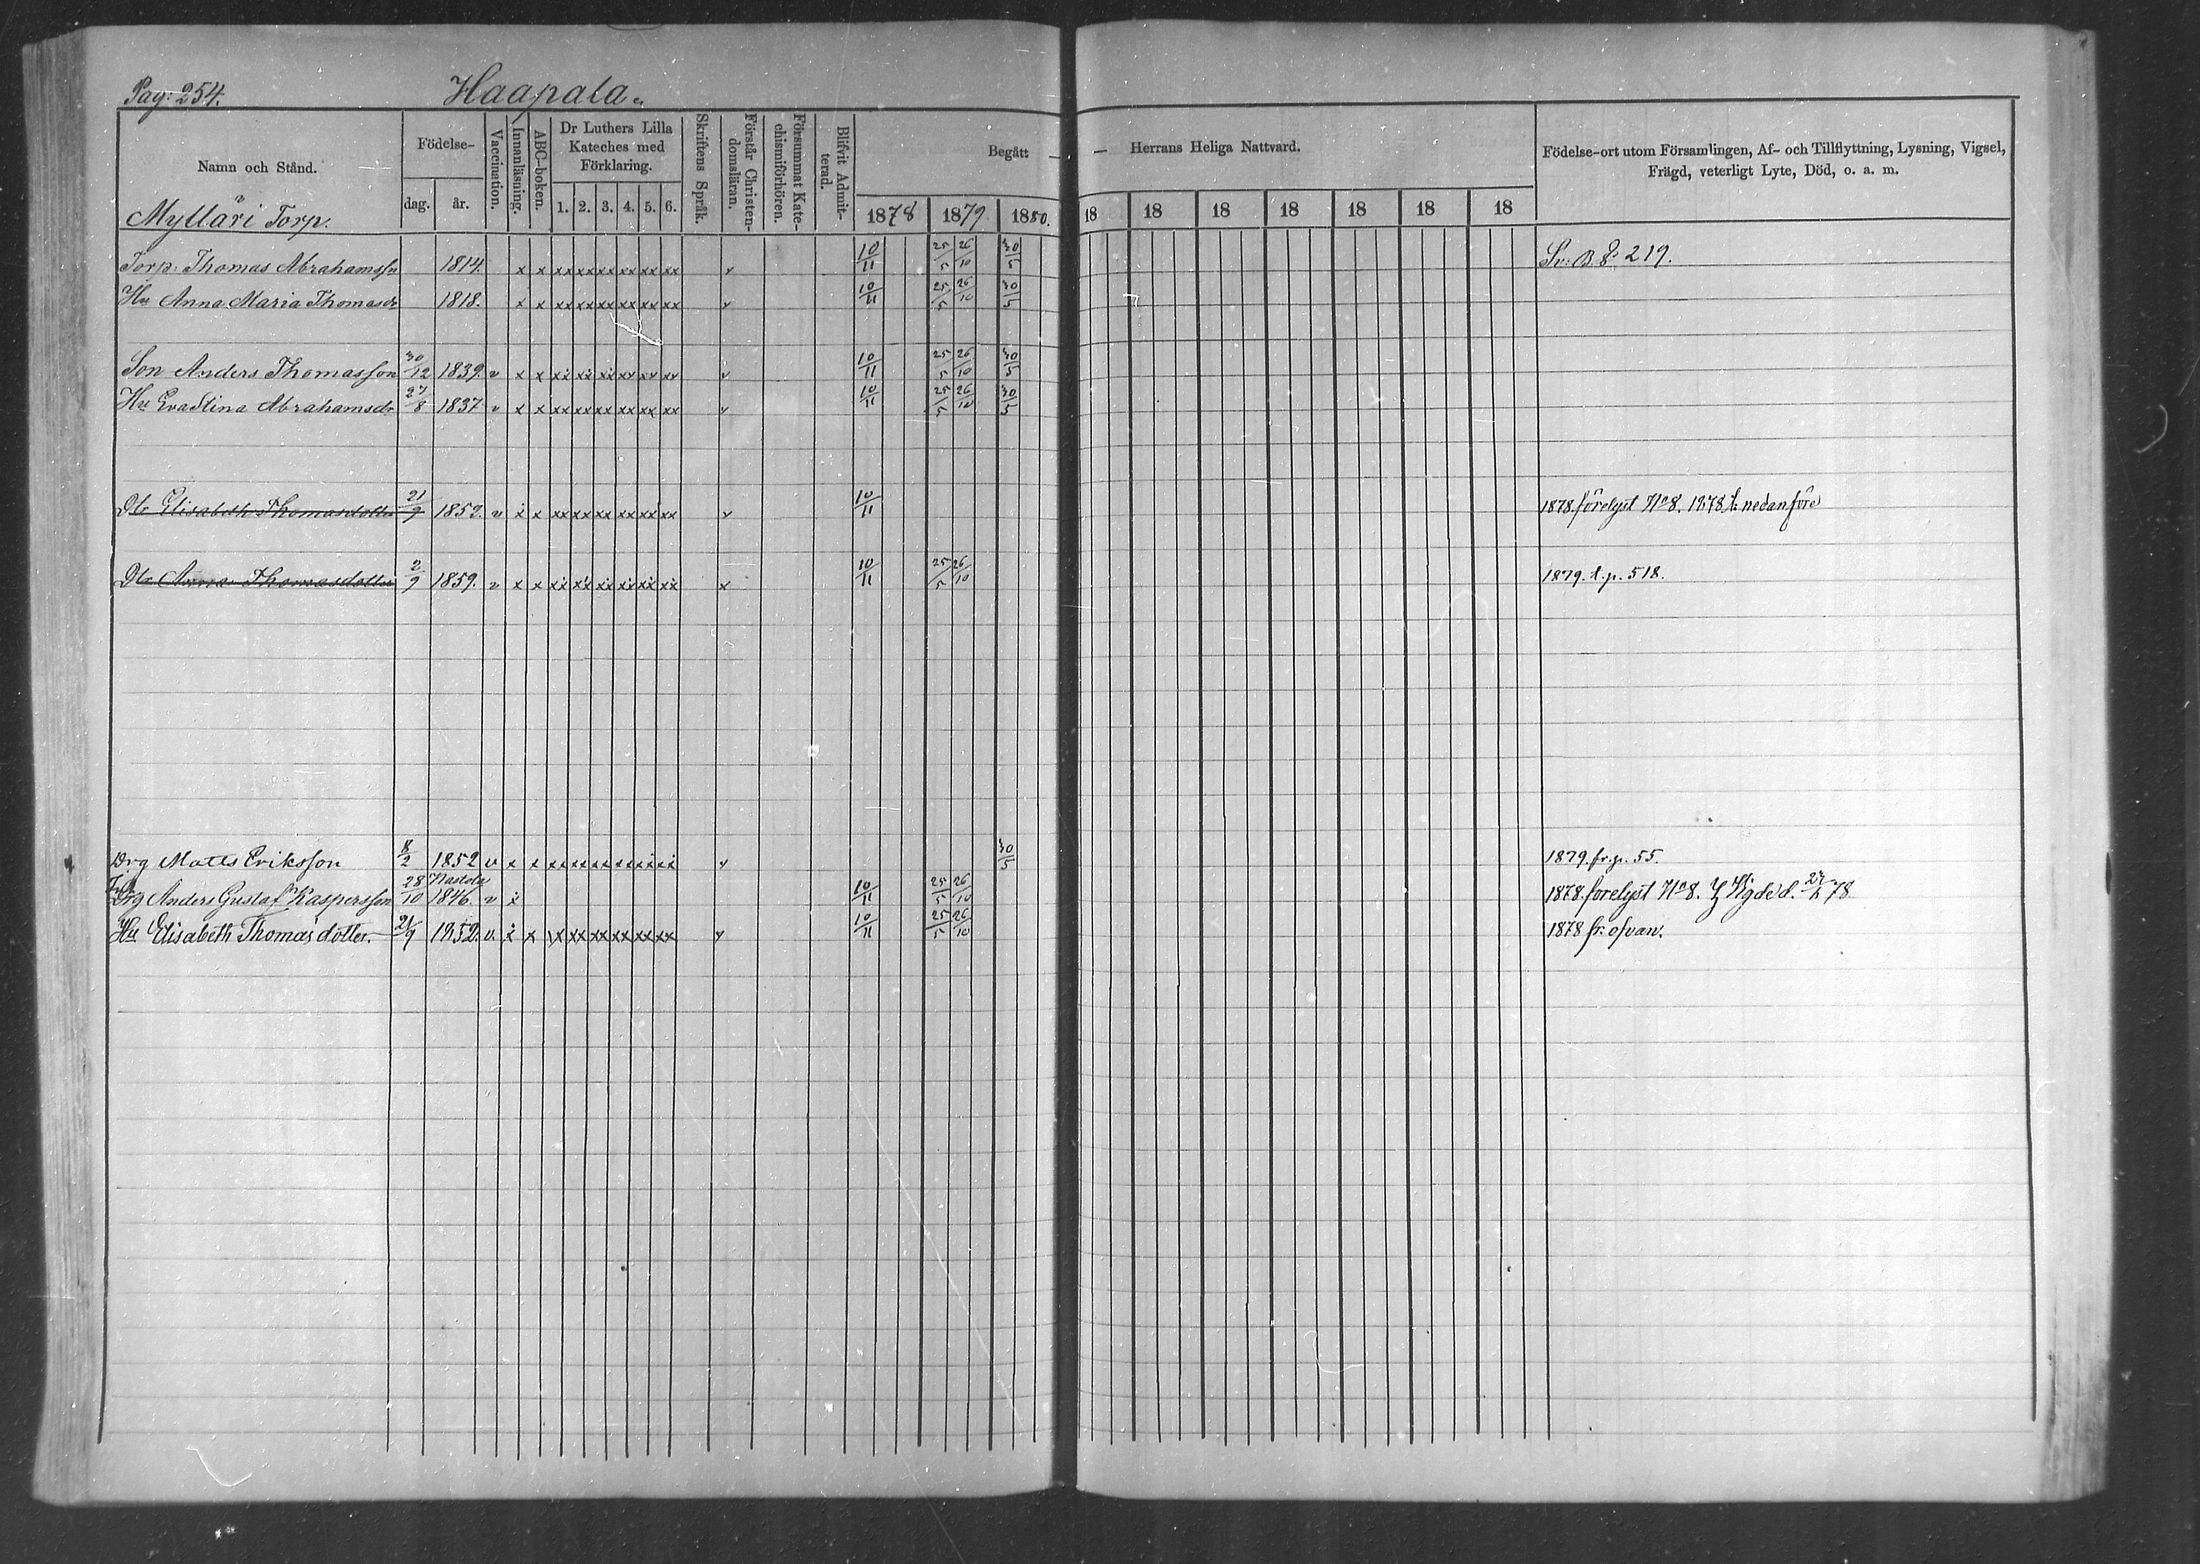 Pag: 254. Haapala.
Namn och Stånd. Födelse- dag. år. Vaccination. Innanläsning. ABC-boken. Dr Luthers Lilla Kateches med Förklaring. 1. 2. 3. 4. 5. 6. Skriftens Språk. Förstår Christen-domsläran. Försummat Kate-chismiförhören. Blifvit Admit-terad. Begått — — Herrans Heliga Nattvard. Födelse-ort utom Församlingen, Af- och Tillflyttning, Lysning, Vigsel, Frägd, veterligt Lyte, Död, o. a. m.
Mylläri Torp. 1878 1879. 1880. 18 18 18 18 18 18 18
Torp: Thomas Abrahamsson 1814. x x xx xx xx xx xx xx v 10/11 25/5 26/10 30/5 219.
Hu Anna Maria Thomasdr 1818. x x xx xx xx xx xx xx v 10/11 25/5 26/10 30/5
Son Anders Thomasson 30/12 1839. v x x xx xx xx xx xx xx v 10/11 25/5 26/10 30/5
Hu Eva Stina Abrahamsdr 27/8 1837 v x x xx xx xx xx xx xx v 10/11 25/5 26/10 30/5
Dtr Elisabeth Thomasdotter 21/9 1852. v x x xx xx xx xx xx xx v 10/11 1878. förelyst No 8. 1878 t. nedanföre
Dtr Anna Thomasdotter 2/9 1859. v x x xx xx xx xx xx xx x 10/11 25/5 26/10 1879. t. p. 518.
Drg Matts Eriksson 8/2 1852 v x x xx xx xx xx xx xx v 30/5 1879. fr. p. 55.
Drg Anders Gustaf Kaspersson 28/10 Nastola 1846. v x 10/11 25/5 26/10 1878. förelyst No 8. Vigde d. 78.
Hu Elisabeth Thomasdotter. 21/9 1852. v. x x xx xx xx xx xx xx v 10/11 25/5 26/10 1878 fr: ofvan.